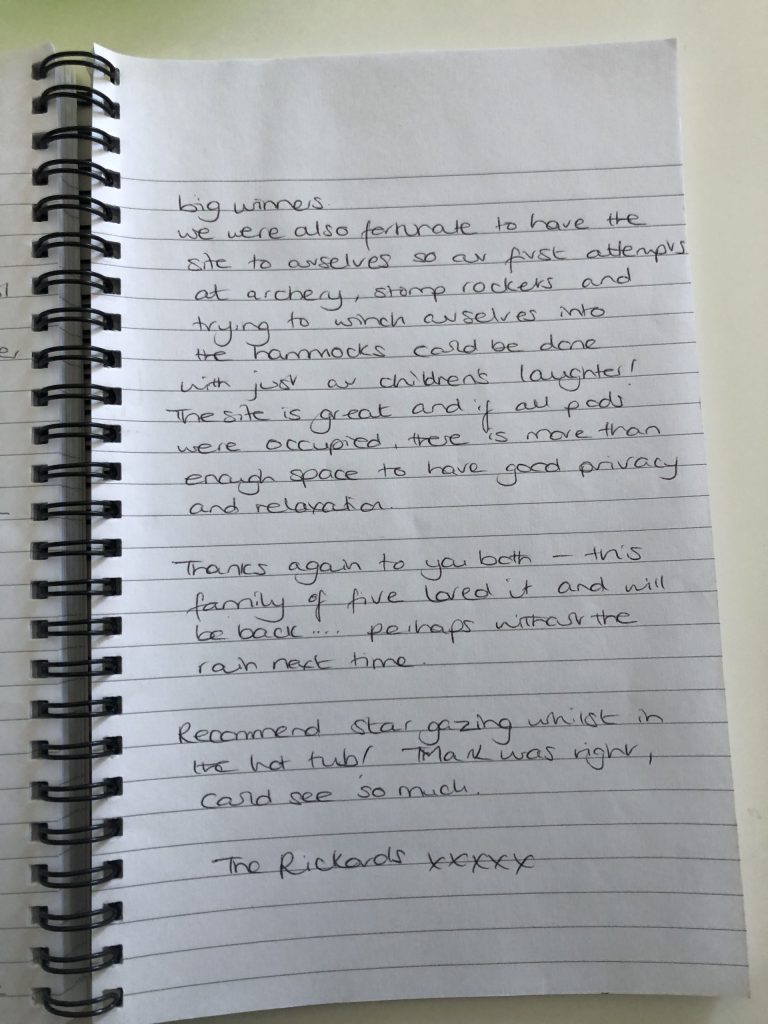 big winners.
we were also fortunate to have the
site to ourselves so our first attempts
at archery, stomp rockets and
trying to winch ourselves into
the hammocks could be done
with just our children's laughter!
The site is great and if all pods
were occupied, there is more than
enough space to have good privacy
and relaxation.
Thanks again to you both – this
family of five loved it and will
be back .... perhaps without the
rain next time.
Recommend star gazing whilst in
the hot tub! Mark was right,
could see so much.
The Rickards xxxxx